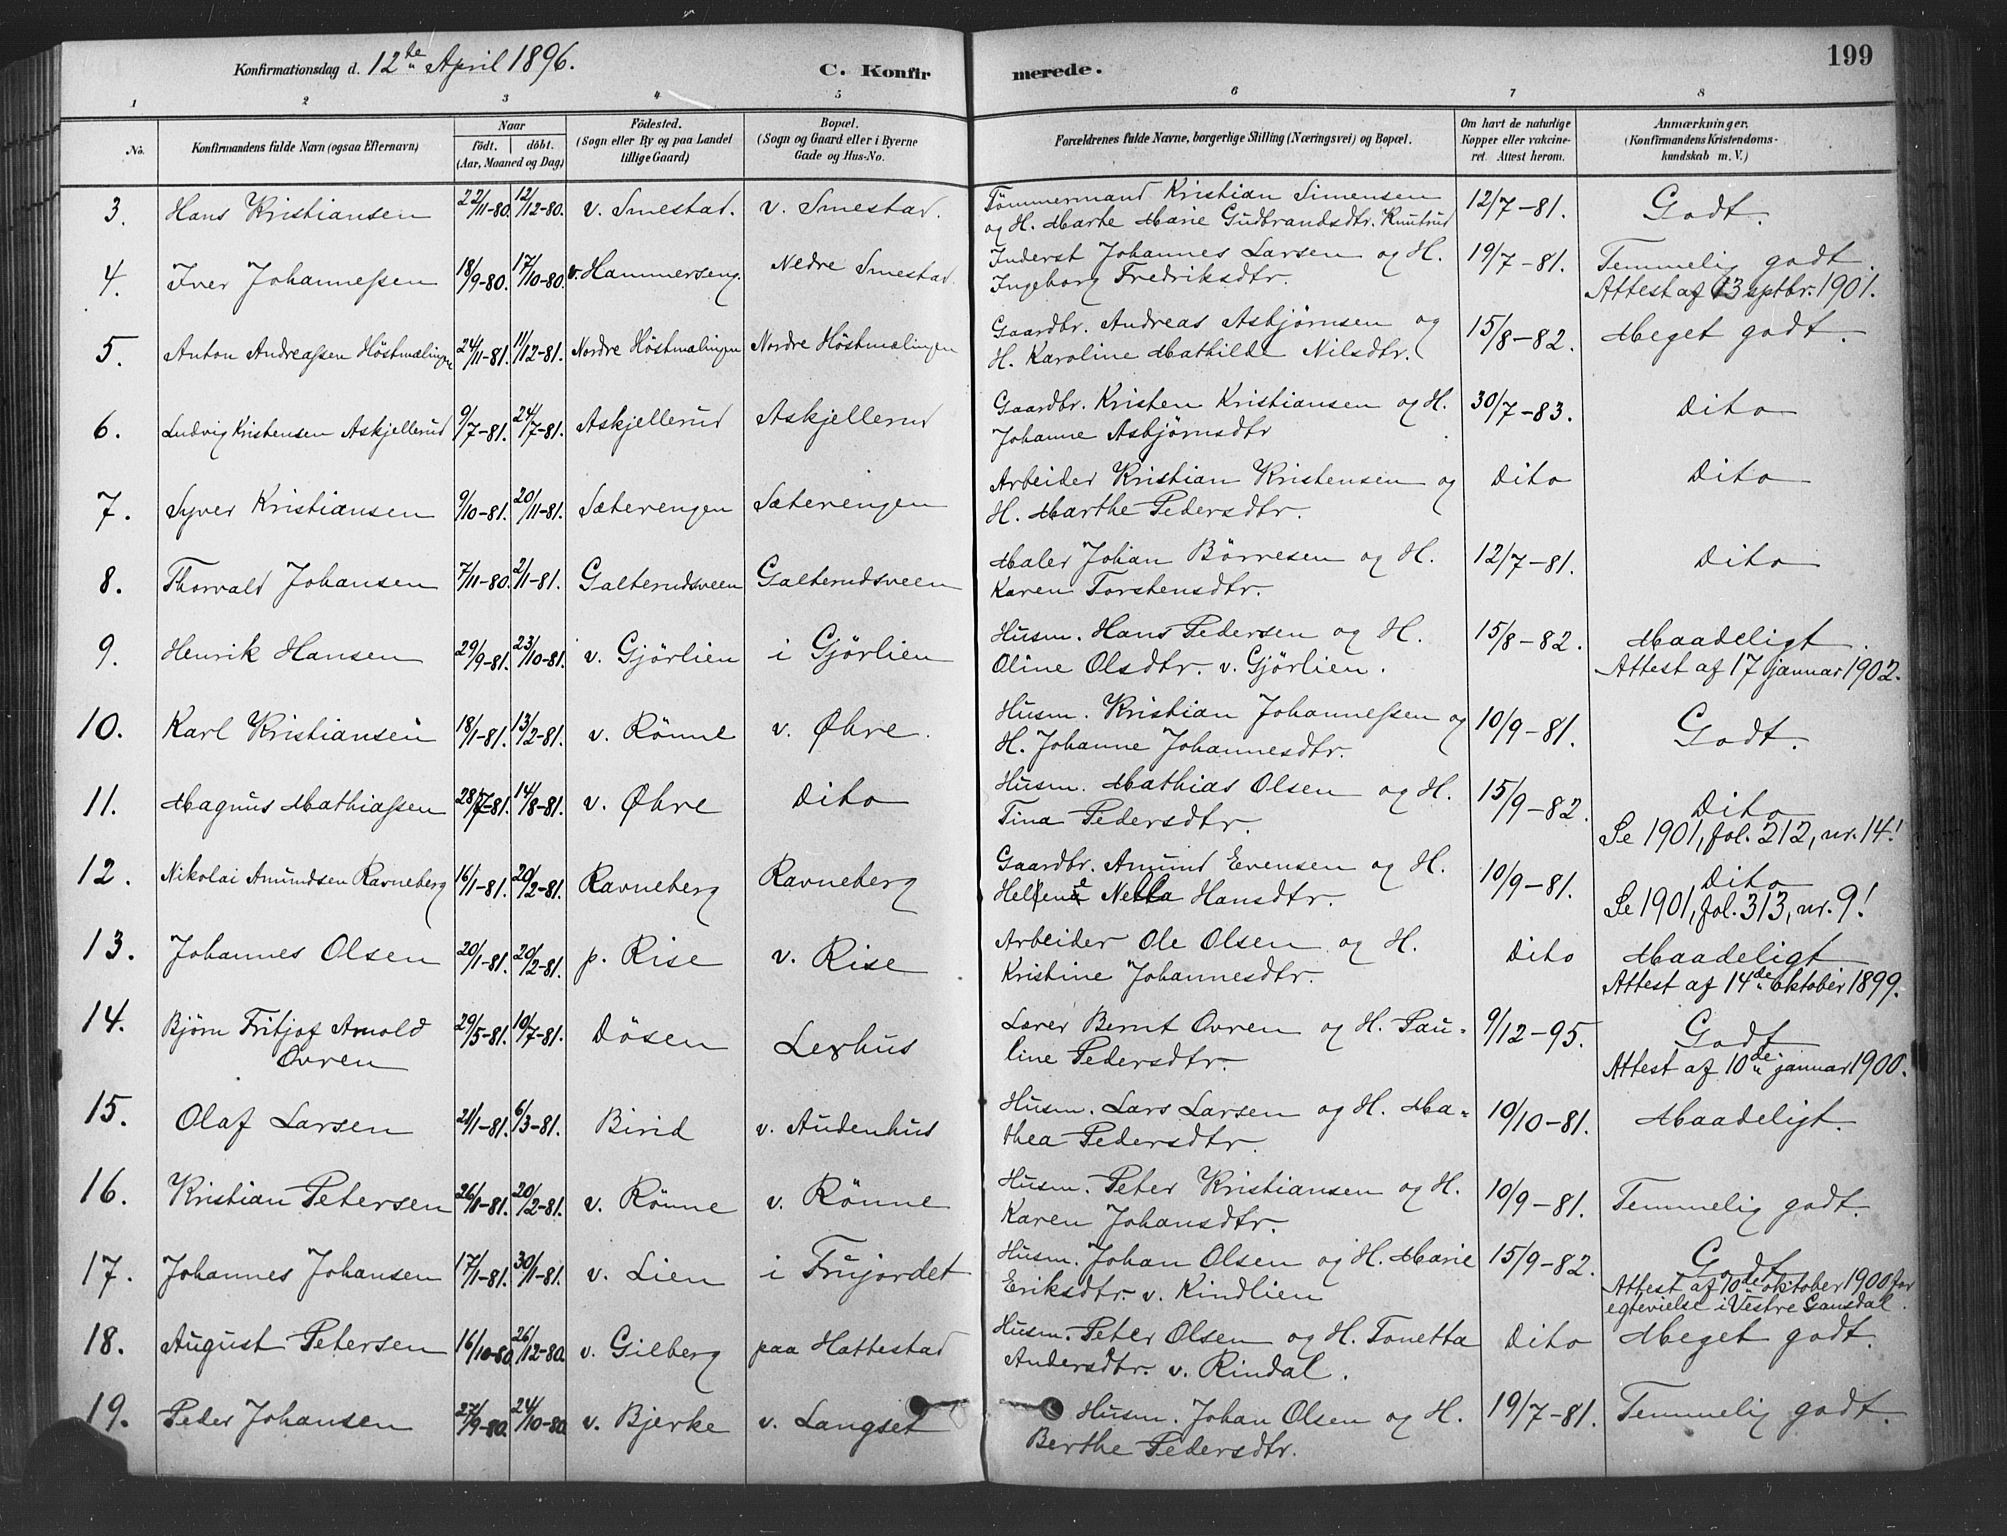 Konfirmationsdag d. 12te April 1896. C. Konfirmerede. 199
1 2 3 4 5 6 7 8
No. Konfirmandens fulde Navn (ogsaa Efternavn) Naar født. døbt. (Aar, Maaned og Dag) Fødested. (Sogn eller By og paa Landet tillige Gaard) Bopæl. (Sogn og Gaard eller i Byerne Gade og Hus-No. Forældrenes fulde Navne, borgerlige Stilling (Næringsvei) og Bopæl. Om havt de naturlige Kopper eller vakcineret. Attest herom. Anmærkninger. (Konfirmandens Kristendomskundskab m. V.)
3. Hans Kristiansen 22/11-80. 12/12-80. v. Smestad. v. Smestad. Tömmermand Kristian Simensen 12/7-81. Godt.
og H. Marthe Marie Gudbrandsdtr. Knutrud
4. Iver Johannessen 18/9-80. 17/10-80. v. Hammerseng. Nedre Smestad. Inderst Johannes Larsen og H. 19/7-81. Temmelig godt.
Ingeborg Fredriksdtr. Attest af 13 septbr. 1901.
5. Anton Andreassen Höstmælingen 24/11-81. 11/12-81. Nordre Höstmælingen Nordre Höstmælingen Gaardbr. Andreas Asbjørnsen og 15/8-82. Meget godt.
H. Karoline Mathilde Nilsdtr.
6. Ludvig Kristensen Askjellerud 9/7-81. 24/7-81. Askjellerud Askjellerud Gaardbr. Kristen Kristiansen og H. 30/7-83. Dito
Johanne Asbjørnsdtr
7. Syver Kristiansen 9/10-81. 20/11-81. Sæterengen Sæterengen Arbeider Kristian Kristensen og Dito Dito
H. Marthe Pedersdtr.
8. Thorvald Johansen 7/11-80. 2/1-81. Galterudsveen Galterudsveen Maler Johan Börresen og H. 12/7-81. Dito
Karen Torstensdtr.
9. Henrik Hansen 29/9-81. 23/10-81. v. Gjörlien i Gjörlien Husm. Hans Pedersen og H. 15/8-82. Maadeligt.
Oline Olsdtr. v. Gjörlien. Attest af 17 januar 1902.
10. Karl Kristiansen 18/1-81. 13/2-81. v. Rönne v. Øhre. Husm. Kristian Johannessen og 10/9-81. Godt.
H. Johanne Johannesdtr.
11. Magnus Mathiassen 28/7-81. 14/8-81. v. Øhre Dito Husm. Mathias Olsen og H. 15/9-82. Dito
Tina Pedersdtr. Se 1901, fol. 212, nr. 14!
12. Nikolai Amundsen Ravneberg 16/1-81. 20/2-81. Ravneberg Ravneberg Gaardbr. Amund Evensen og H. 10/9-81. Dito
Netta Hansdtr. Se 1901, fol. 313, nr. 9!
13. Johannes Olsen 20/1-81. 20/2-81. p. Rise v. Rise Arbeider Ole Olsen og H. Dito Maadeligt
Kristine Johannesdtr. Attest af 14de oktober 1899.
14. Björn Fritjof Arnold 29/5-81. 10/7-81. Dösen Lexhus Lærer Bernt Ovren og H. Pau- 9/12-95. Godt
Ovren line Pedersdtr. Attest af 10de januar 1900.
15. Olaf Larsen 21/1-81. 6/3-81. Birid v. Audenhus Husm. Lars Larsen og H. Ma- 10/10-81. Maadeligt.
thea Pedersdtr.
16. Kristian Petersen 26/1-81. 20/2-81. v. Rönne v. Rönne Husm. Peter Kristiansen og H. 10/9-81. Temmelig godt.
Karen Johansdtr.
17. Johannes Johansen 17/1-81. 30/1-81. v. Lien i Frujordet Husm. Johan Olsen og H. Marie 15/9-82. Godt
Eriksdtr. v. Kindlien Attest af 10de oktober 1900 for
egtevielse i Vestre Gausdal.
18. August Petersen 16/10-80. 26/12-80. v. Gilberg paa Hattestad Husm. Peter Olsen og H. Tonetta Dito Meget godt.
Andersdtr. v. Rindal.
19. Peder Johansen 27/9-80. 24/10-80. v. Bjerke v. Langset Husm. Johan Olsen og H. 19/7-81. Temmelig godt.
Berthe Pedersdtr.